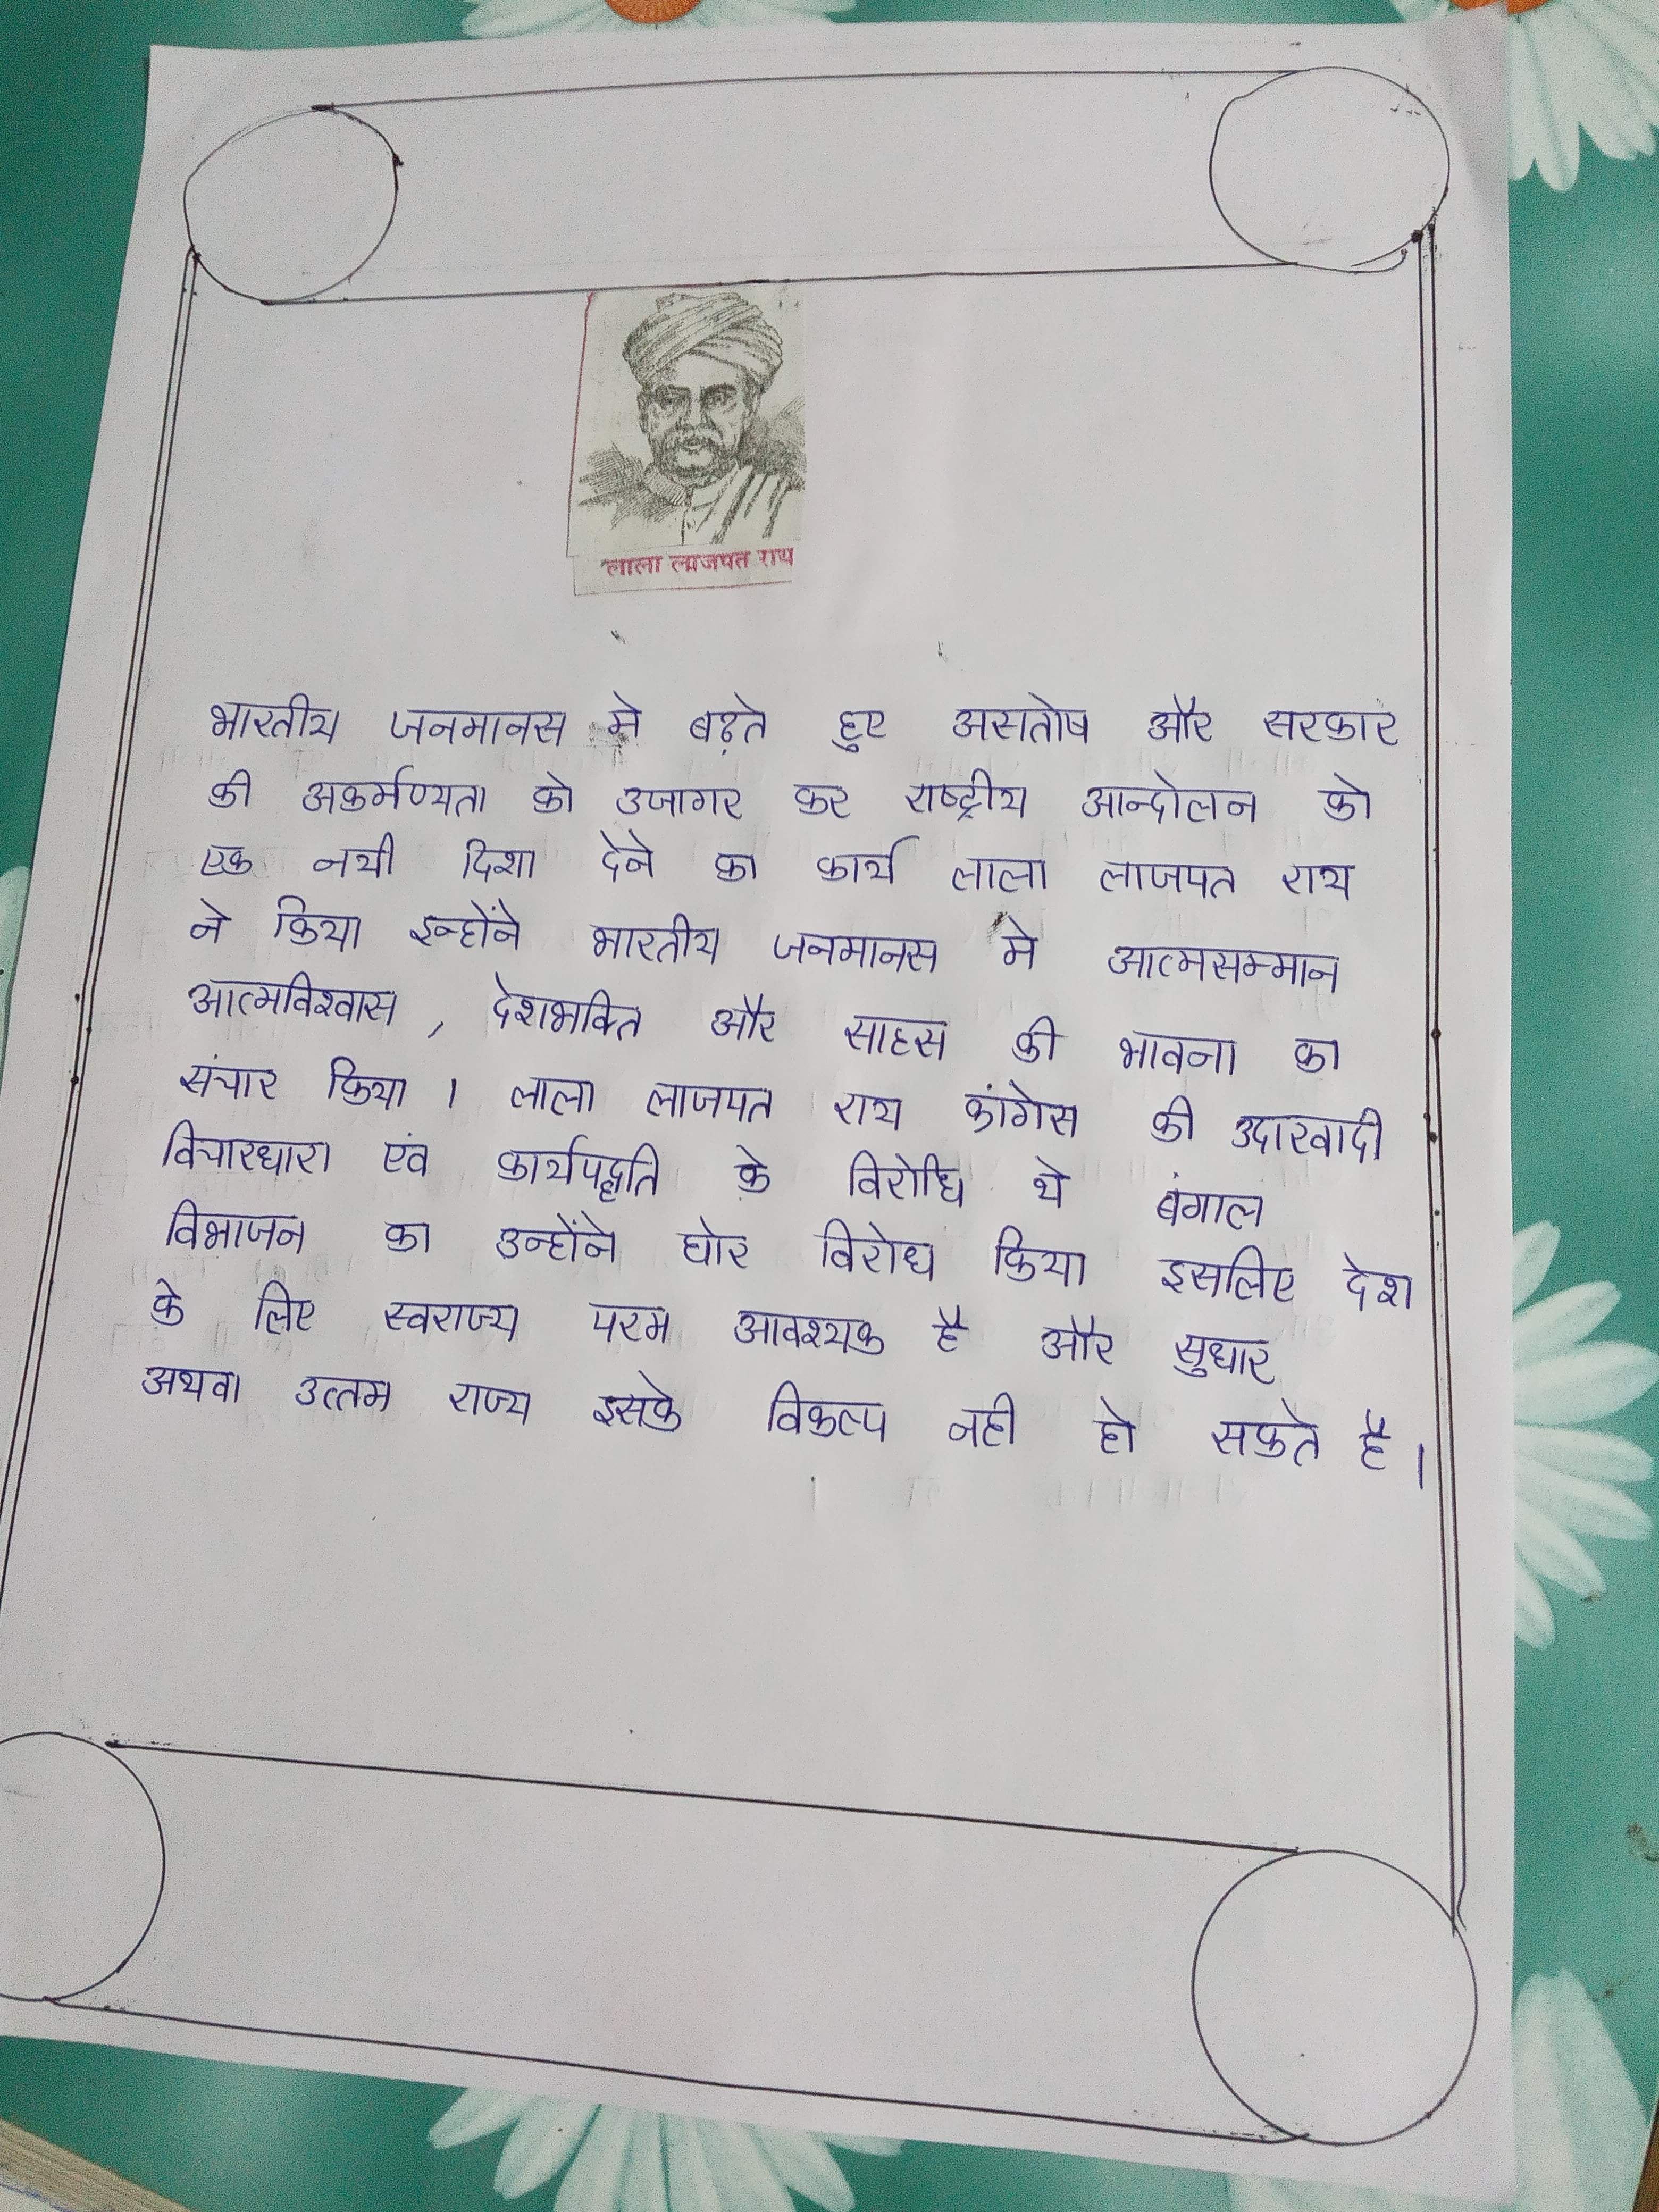 लाला लाजपत राय
भारतीय जनमानस मे बढ़ते हुए असतोष और सरकार
की अकर्मण्यता को उजागर कर राष्ट्रीय आन्दोलन को
एक नयी दिशा देने का कार्य लाला लाजपत राय
ने किया इन्होंने भारतीय जनमानस मे आत्मसम्मान
आत्मविश्वास , देशभक्ति और साहस की भावना का
संचार किया । लाला लाजपत राय कांगेस की उदारवादी
विचारधारा एंव कार्यपद्धति के विरोधि थे बंगाल
विभाजन का उन्होंने घोर विरोध किया इसलिए देश
के लिए स्वराज्य परम आवश्यक है और सुधार
अथवा उत्तम राज्य इसके विकल्प नही हो सकते है ।